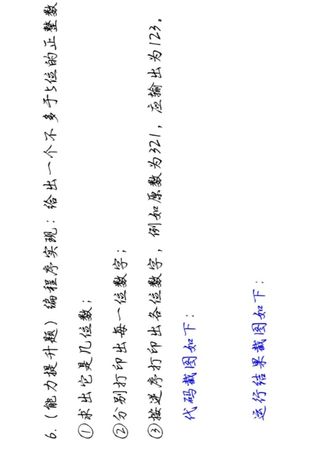 6.(能力提升题)编程序实现:给出一个不多于5位的正整数
①求出它是几位数;
②分别打印出每一位数字;
③按逆序打印出各位数字,例如原数为321,应输出为123。
代码截图如下:
运行结果截图如下: